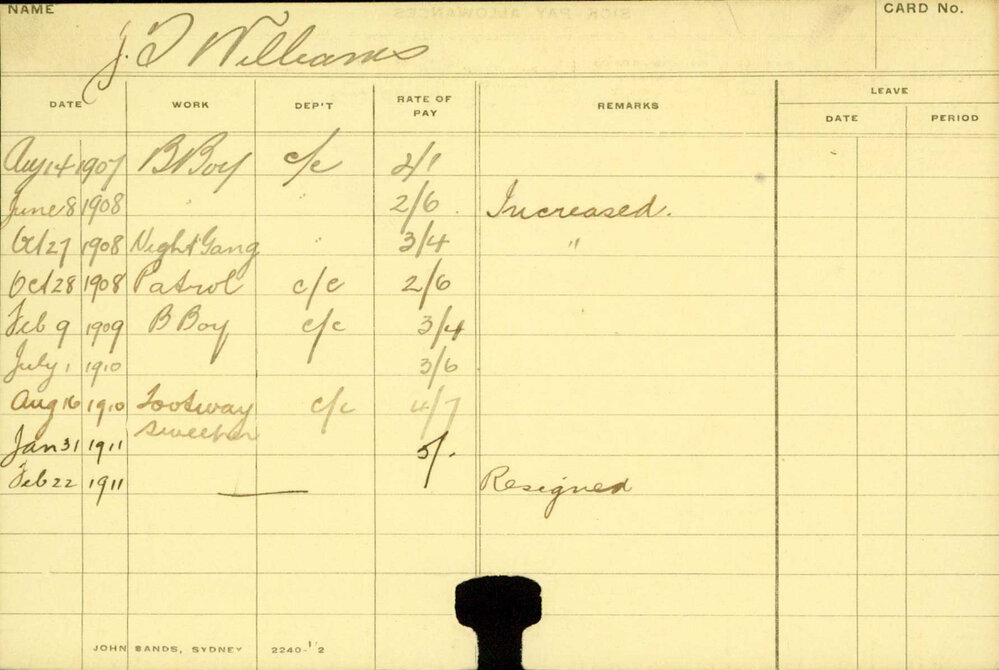 NAME
J. T Williams
CARD No.
DATE WORK DEP'T RATE OF PAY REMARKS LEAVE
DATE PERIOD
Aug 14 1907 B Boy c/c 2/1
June 8 1908 " " 2/6 Increased.
Oct 27 1908 Night Gang " 3/4 "
Oct 28 1908 Patrol c/c 2/6
Feb 9 1909 B Boy c/c 3/4
July 1 1910 3/6
Aug 16 1910 Footway c/c 4/7
Sweeper
Jan 31 1911 5/.
Feb 22 1911 — Resigned
JOHN SANDS, SYDNEY 2240-1/2